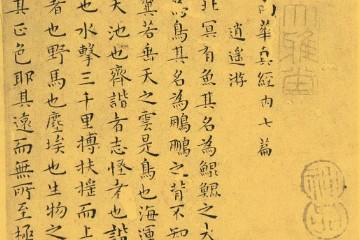 華真經内七篇
逍遥游
北冥有魚其名為鯤鯤之大
鳥其名為鵬鵬之背不知
翼若垂天之雲是鳥也海運
天池也齊諧者志怪者也諧
也水擊三千里摶扶摇而上
者也野馬也塵埃也生物之
其正色耶其遠而無所至極